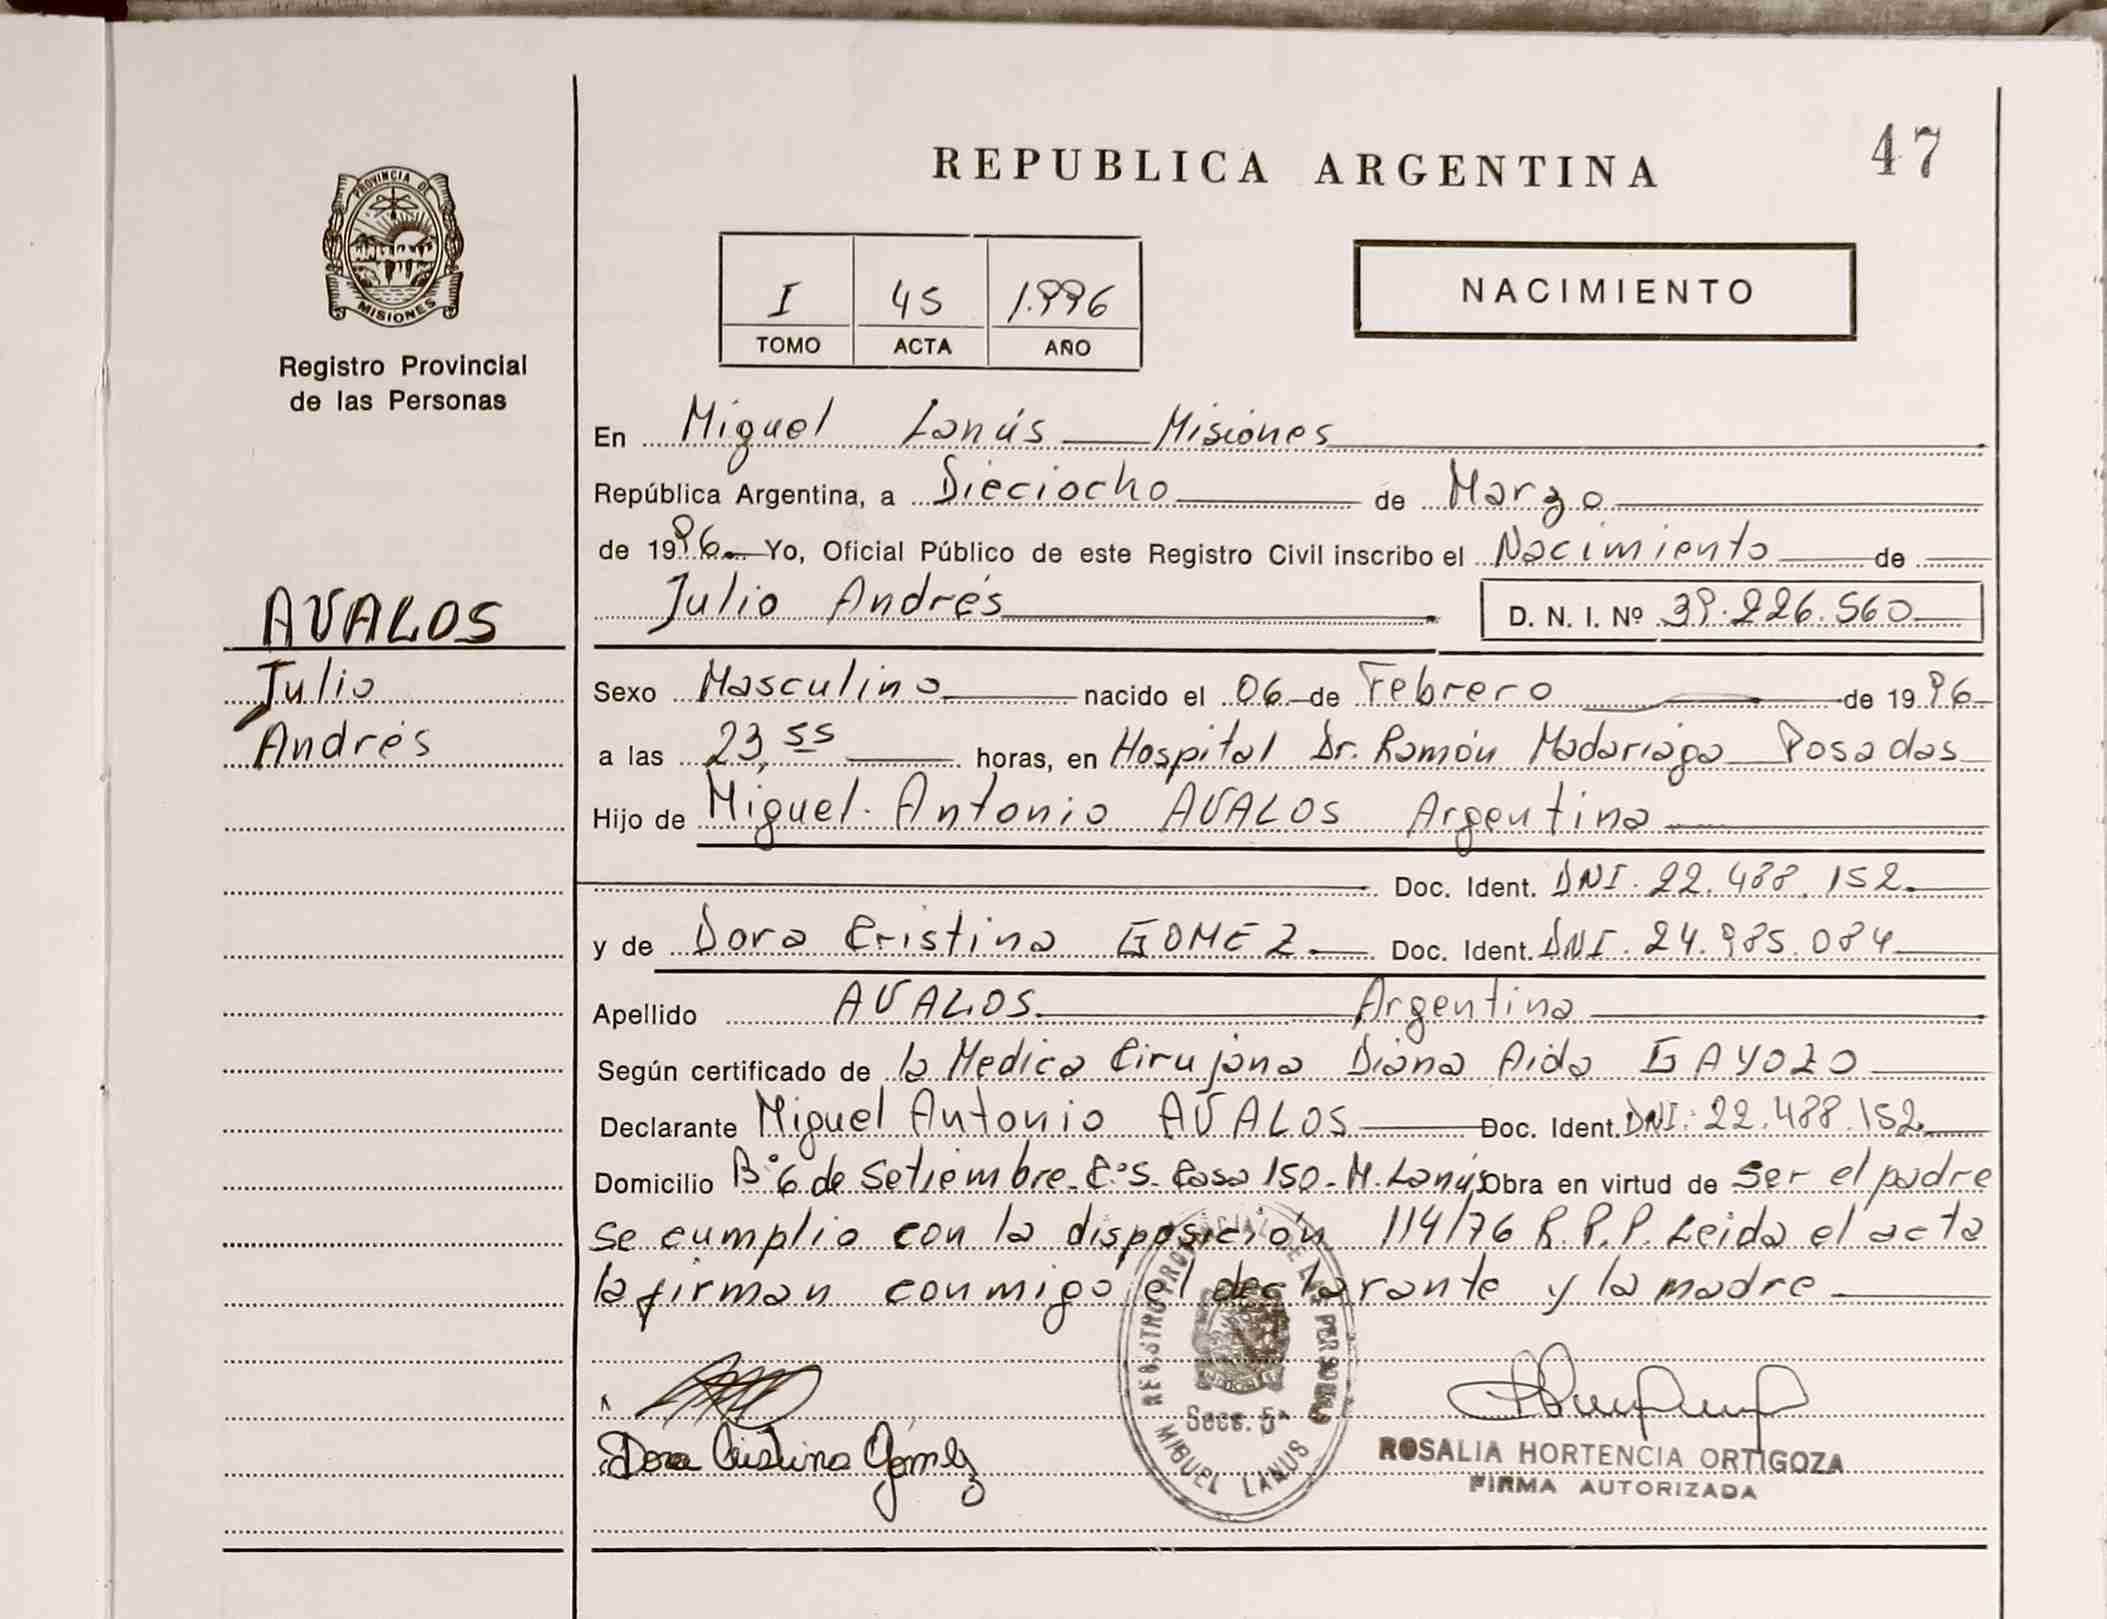 REPUBLICA ARGENTINA
47
PROVINCIA DE
MISIONES
Registro Provincial
de las Personas
I 45 1.996
TOMO ACTA AÑO
NACIMIENTO
En Miguel Lanús Misiones
República Argentina, a Dieciocho de Marzo
de 1996 Yo, Oficial Público de este Registro Civil inscribo el Nacimiento de
Julio Andrés D. N. I. Nº 39.226.560
AVALOS
Julio
Andrés
Sexo Masculino nacido el 06 de Febrero de 1996
a las 23,55 horas, en Hospital Dr. Ramón Madariaga Posadas
Hijo de Miguel Antonio AVALOS Argentina
Doc. Ident. DNI. 22.488.152
y de Dora Cristina GOMEZ Doc. Ident. DNI. 24.985.084
Apellido AVALOS Argentina
Según certificado de la Medica Cirujana Diana Aida GAYOZO
Declarante Miguel Antonio AVALOS Doc. Ident. DNI: 22.488.152
Domicilio Bº 6 de Setiembre C:S. Casa 150-M. Lanús Obra en virtud de ser el padre
se cumplio con la disposición 114/76 R.P.P. Leida el acta
la firman conmigo el declarante y la madre
REGISTRO PROVINCIAL DE LAS PERSONAS
Secc. 5ª
MIGUEL LANUS
Dora Cristina Gómez
ROSALIA HORTENCIA ORTIGOZA
FIRMA AUTORIZADA